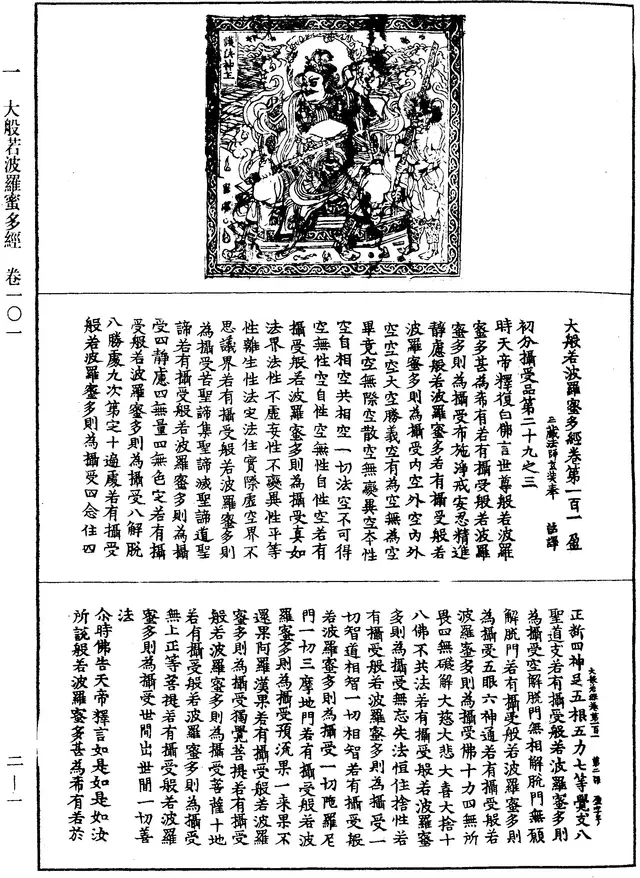 一 大般若波羅蜜多經 卷一〇一
護法神王
大般若波羅蜜多經卷第一百一 盈
三藏法師玄奘奉 詔譯
初分攝受品第二十九之三
時天帝釋復白佛言世尊般若波羅
蜜多甚為希有若有攝受般若波羅
蜜多則為攝受布施淨戒安忍精進
靜慮般若波羅蜜多若有攝受般若
波羅蜜多則為攝受內空外空內外
空空空大空勝義空有為空無為空
畢竟空無際空散空無變異空本性
空自相空共相空一切法空不可得
空無性空自性空無性自性空若有
攝受般若波羅蜜多則為攝受真如
法界法性不虛妄性不變異性平等
性離生性法定法住實際虛空界不
思議界若有攝受般若波羅蜜多則
為攝受苦聖諦集聖諦滅聖諦道聖
諦若有攝受般若波羅蜜多則為攝
受四靜慮四無量四無色定若有攝
受般若波羅蜜多則為攝受八解脫
八勝處九次第定十遍處若有攝受
般若波羅蜜多則為攝受四念住四
正斷四神足五根五力七等覺支八
大般若經卷第一百一 第二張 盈字号
聖道支若有攝受般若波羅蜜多則
為攝受空解脫門無相解脫門無願
解脫門若有攝受般若波羅蜜多則
為攝受五眼六神通若有攝受般若
波羅蜜多則為攝受佛十力四無所
畏四無礙解大慈大悲大喜大捨十
八佛不共法若有攝受般若波羅蜜
多則為攝受無忘失法恒住捨性若
有攝受般若波羅蜜多則為攝受一
切智道相智一切相智若有攝受般
若波羅蜜多則為攝受一切陁羅尼
門一切三摩地門若有攝受般若波
羅蜜多則為攝受預流果一來果不
還果阿羅漢果若有攝受般若波羅
蜜多則為攝受獨覺菩提若有攝受
般若波羅蜜多則為攝受菩薩十地
若有攝受般若波羅蜜多則為攝受
無上正等菩提若有攝受般若波羅
蜜多則為攝受世間出世間一切善
法
尒時佛告天帝釋言如是如是如汝
所說般若波羅蜜多甚為希有若於
二—一